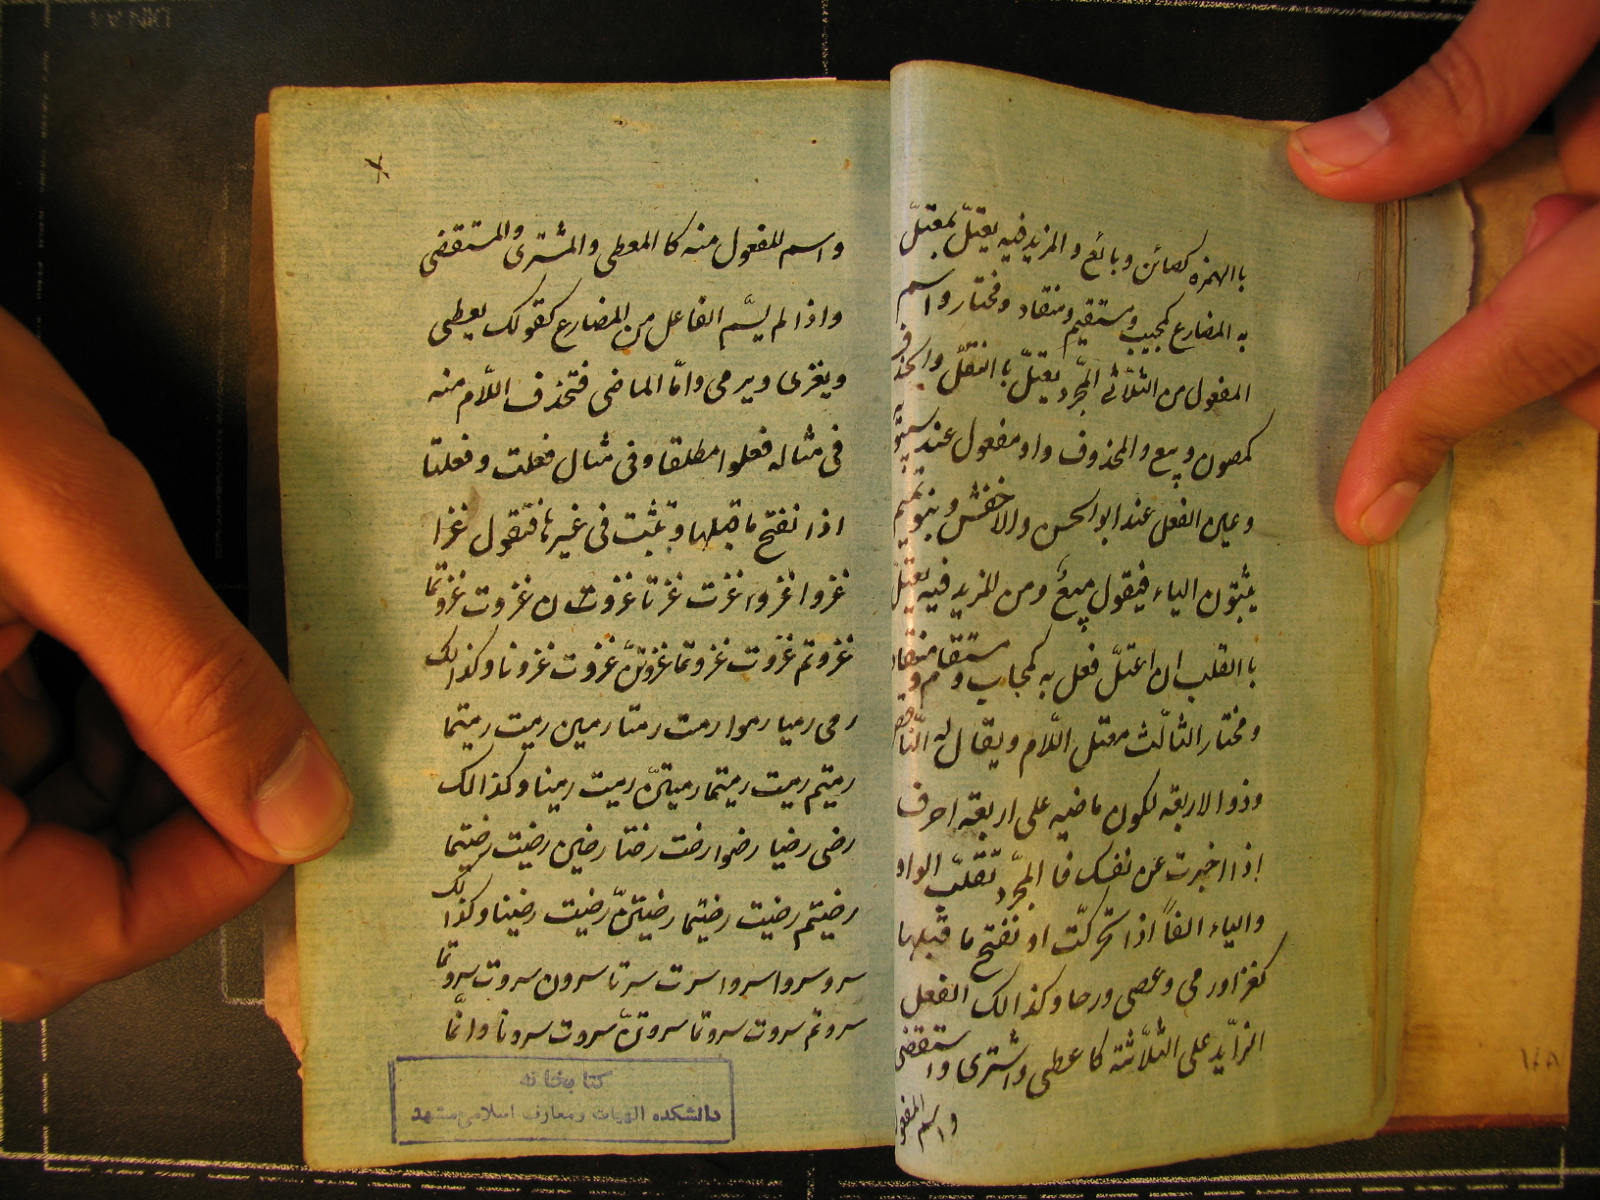 باالهمزه كصائن وبائع والمزيد فيه يعتلّ بمعتلّ
به المضارع كمجيب ومستقيم ومنقاد ومختار واسم
المفعول من الثلاثى المجّرد يعتلّ باالنقلّ والحذف
كمصون ومبيع والمحذوف واو مفعول عند سيبويه
وعين الفعل عند ابوالحسن والاخفش وبنو تميم
يثبتون الياء فيقول مبيعٌ ومن المزيد فيه يعتلّ
باالقلب ان اعتلّ فعل به كمجاب ومستقام ومنقاد
ومختار الثالّث معتل اللّام ويقال له النّاقص
وذوالاربعه لكون ماضيه على اربعة احرف
اذا اخبرت عن نفسك فا المجّرد تقلّب الواو
والياء الفاً اذا تحركّت او نفتح ما قبلها
كغزا ورمى وعصى ورحا وكذالك الفعل
الزّايد على الثلّاثة كاعطى واشترى واستقضى
واسم المفعول
واسم المفعول منه كا المعطى والمشترى والمستقضى
واذا لم يسّم الفاعل من المضارع كقولك يعطى
ويغزى ويرمى وامّا الماضى فتحذف اللّام منه
فى مثاله فعلوا مطلقا وفى مثال فعلت وفعلتا
اذا نفتح ما قبلها وتثبت فى غيرها فتقول غزا
غزوا غزوا غزت غزتا غزون غزوت غزوتما
غزوتم غزوت غزوتما غزوتنّ غزوت غزونا وكذالك
رمى رميا رموا رمت رمتا رمين رميت رميتما
رميتم رميت رميتما رميتنّ رميت رمينا وكذالك
رضى رضيا رضوا رضت رضتا رضين رضيت رضيتما
رضيتم رضيت رضيتما رضيتنّ رضيت رضينا وكذالك
سرو سروا سروا سرت سرتا سرون سروت سروتما
سروتم سروت سروتما سروتنّ سروت سرونا وانمّا
كتابخانه
دانشكده الهيات ومعارف اسلامى مشهد